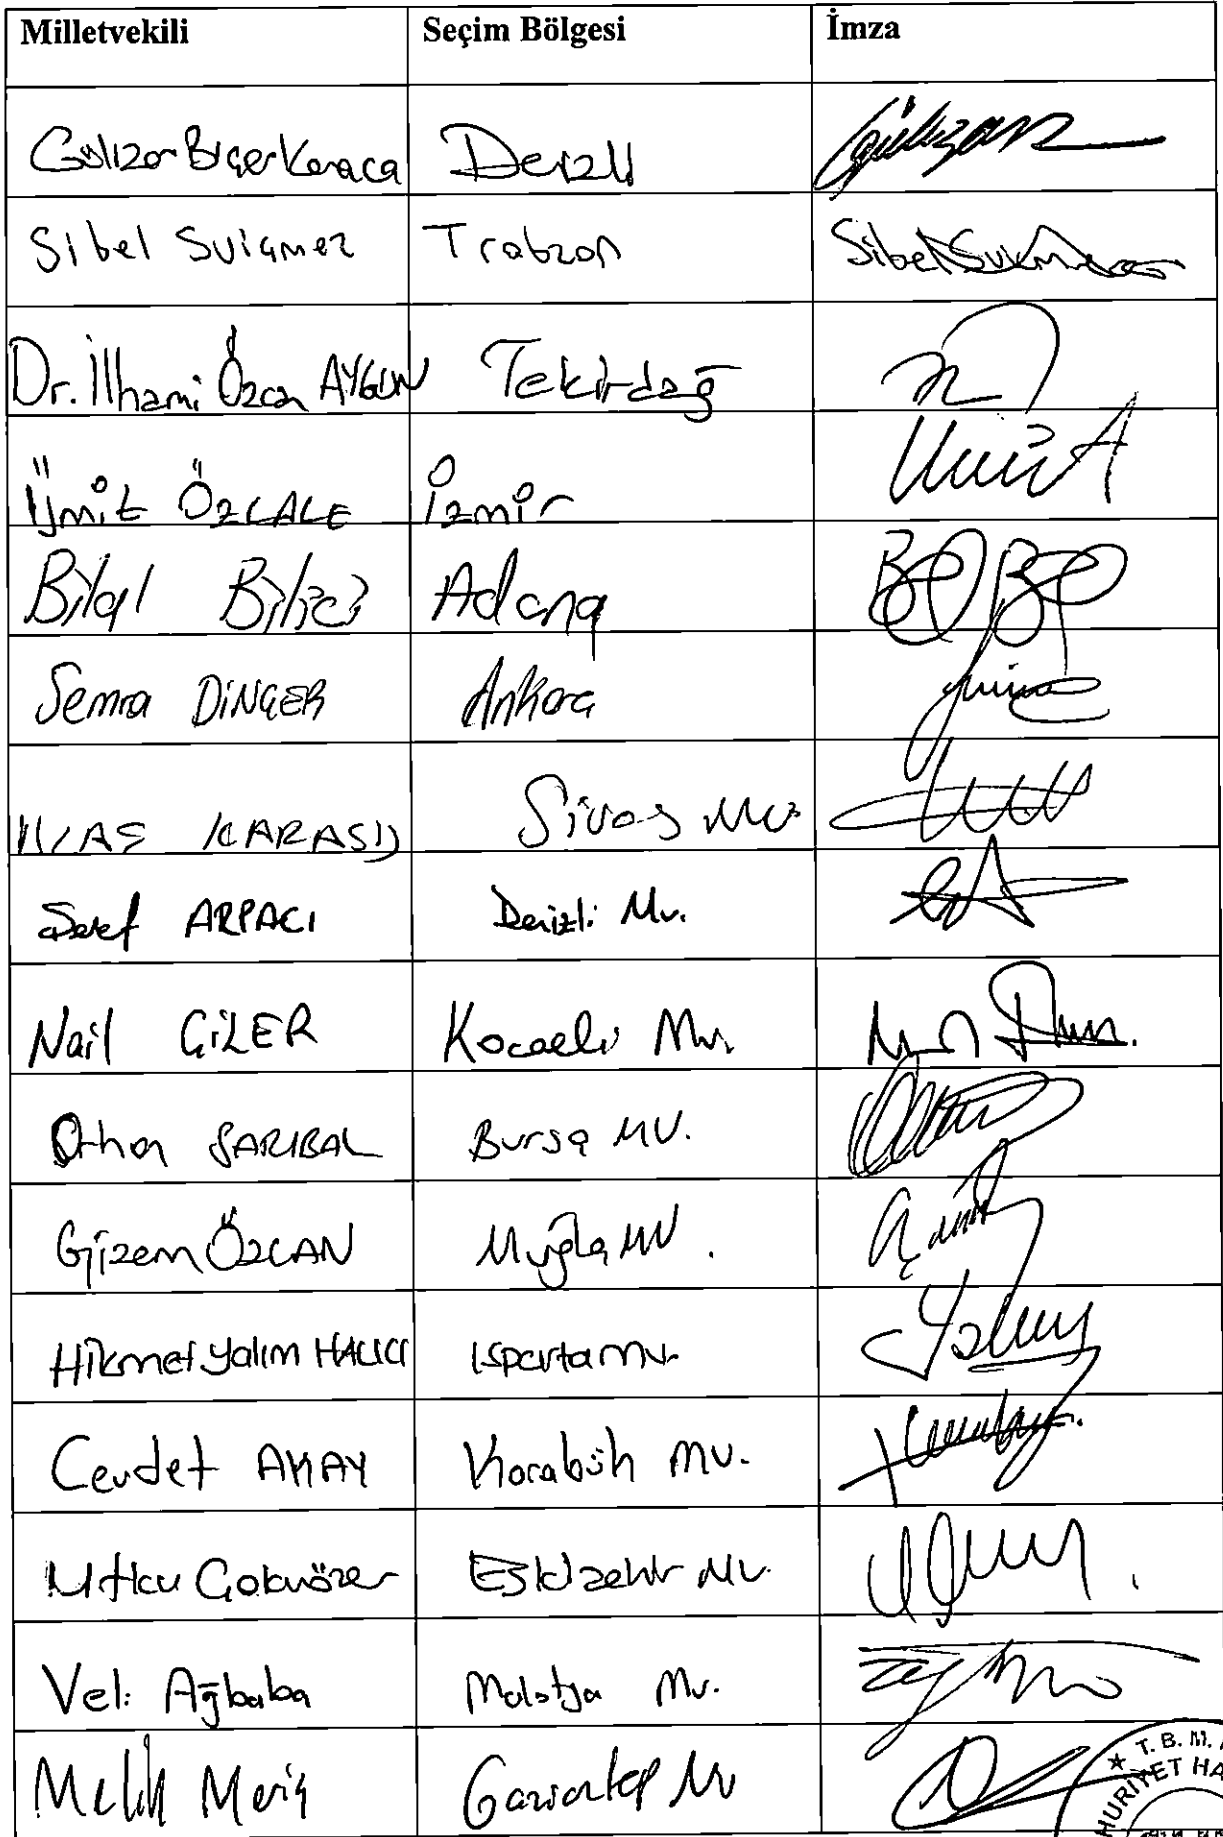 Milletvekili Seçim Bölgesi İmza
Gülizar Biçer Karaca Denizli Gülizar
Sibel Suiçmez Trabzon Sibel Suiçmez
Dr. İlhami Özcan AYGUN Tekirdağ
Ümit ÖZLALE İzmir
Bilal Bilici Adana
Semra DİNÇER Ankara
Sivas Mv.
Şeref ARPACI Denizli Mv.
Nail ÇİLER Kocaeli Mv.
Orhan SARIBAL Bursa MV.
Gizem ÖZCAN Muğla MV.
Hikmet Yalım HALICI Isparta mv.
Cevdet AKAY Karabük MV.
Utku Çakırözer Eskişehir Mv.
Veli Ağbaba Malatya Mv.
Melih Meriç Gaziantep Mv
T. B. M.